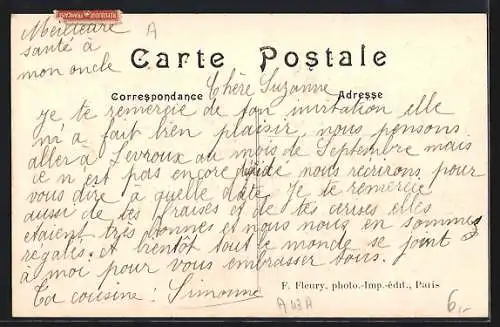 REPUBLIQUE FRANCAISE
Meilleure
santé à
mon oncle
A
Carte Postale
Correspondance
Adresse
Chère Suzanne
Je te remercie de ton invitation elle
m'a fait bien plaisir, nous pensons
aller à Levroux au mois de Septembre mais
ce n'est pas encore décidé nous récrirons pour
vous dire à quelle date. Je te remercie
aussi de tes fraises et de tes cerises elles
étaient très bonnes et nous nous en sommes
régalés. et bientôt tout le monde se joint
à moi pour vous embrasser tous.
Ta cousine : Simonne
F. Fleury, photo.-Imp.-édit., Paris
A 43 A
6,-